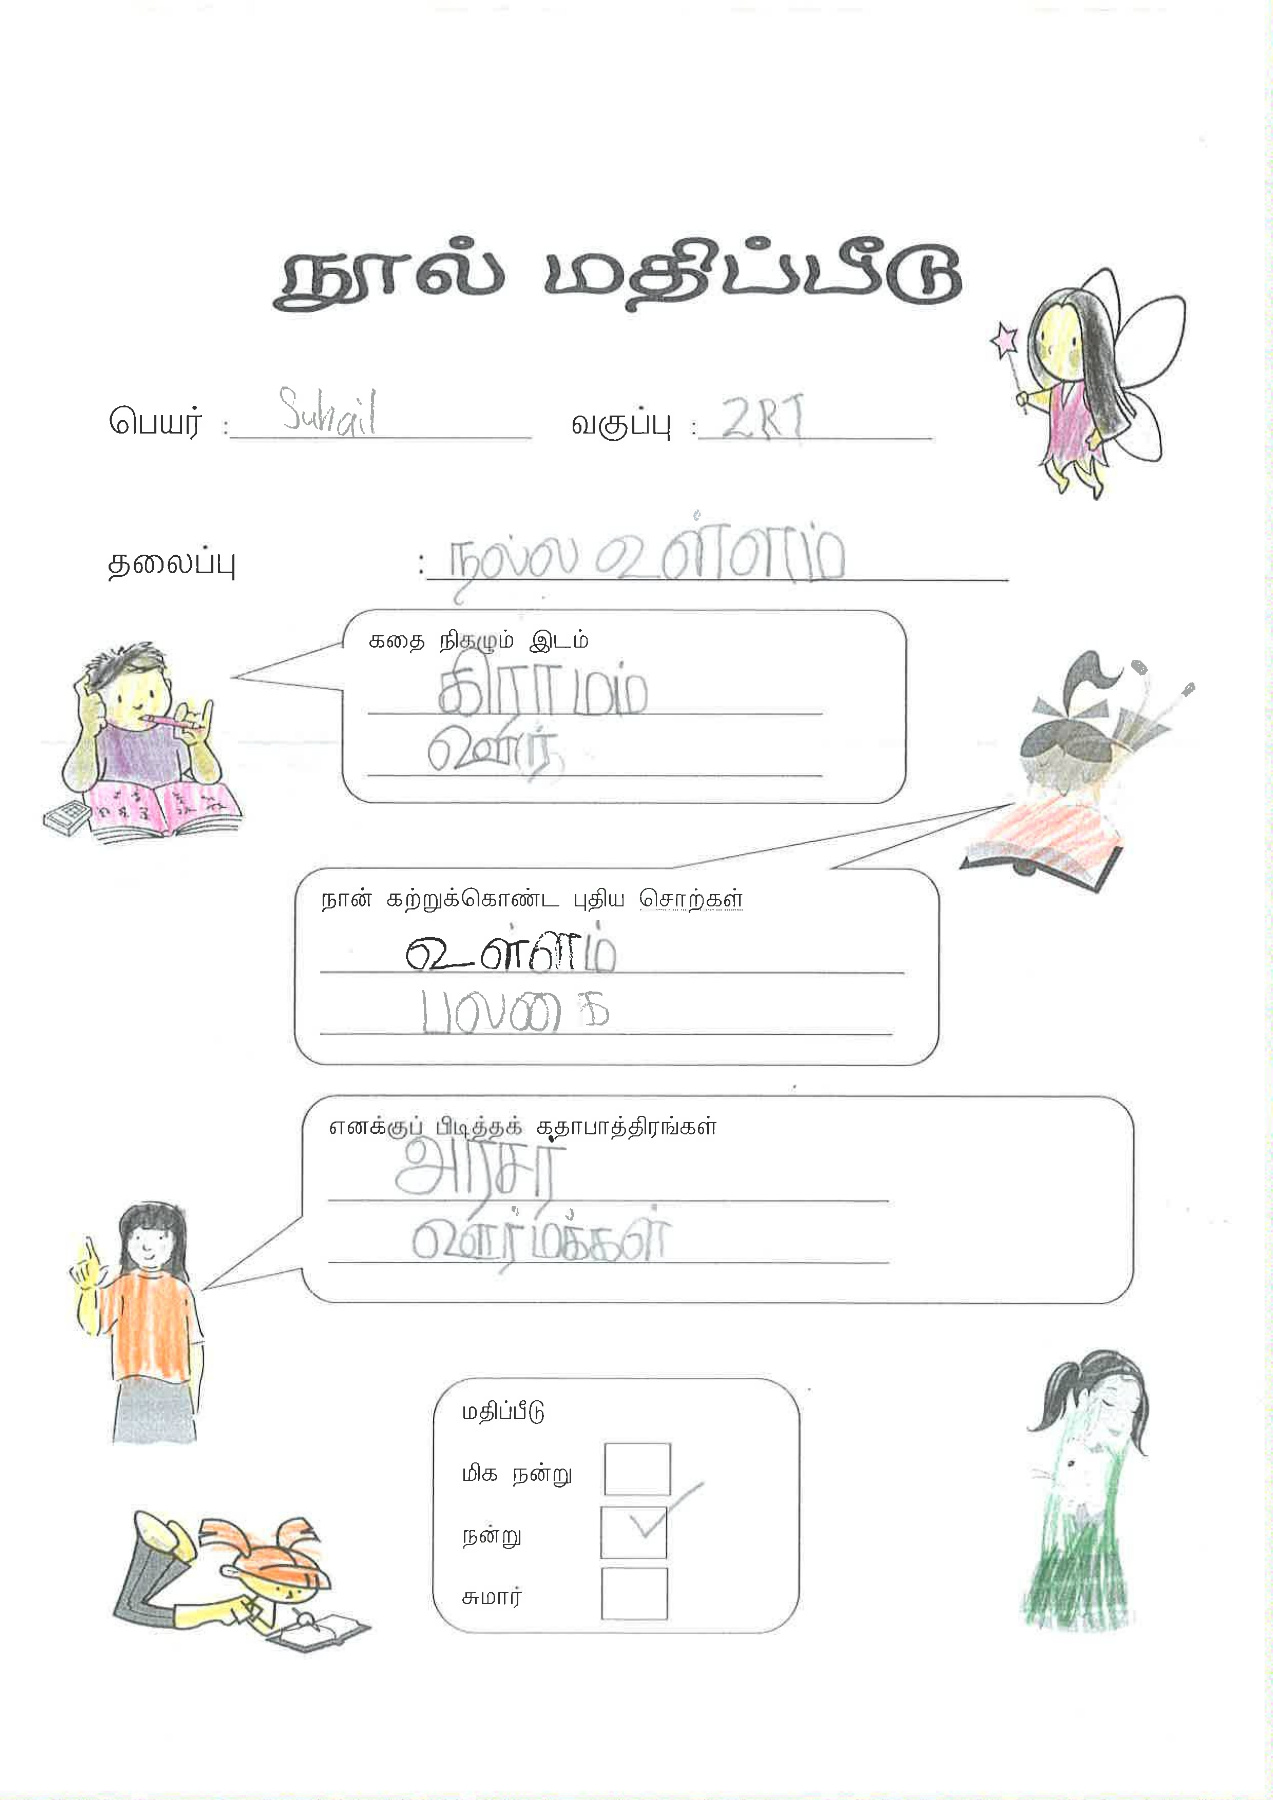 நூல் மதிப்பீடு
பெயர் : Suhail வகுப்பு : 2RT
தலைப்பு : நல்ல உள்ளம்
கதை நிகழும் இடம்
கிராமம்
ஊர்
நான் கற்றுக்கொண்ட புதிய சொற்கள்
உள்ளம்
பலகை
எனக்குப் பிடித்தக் கதாபாத்திரங்கள்
அரசர்
ஊர்மக்கள்
மதிப்பீடு
மிக நன்று
நன்று
சுமார்